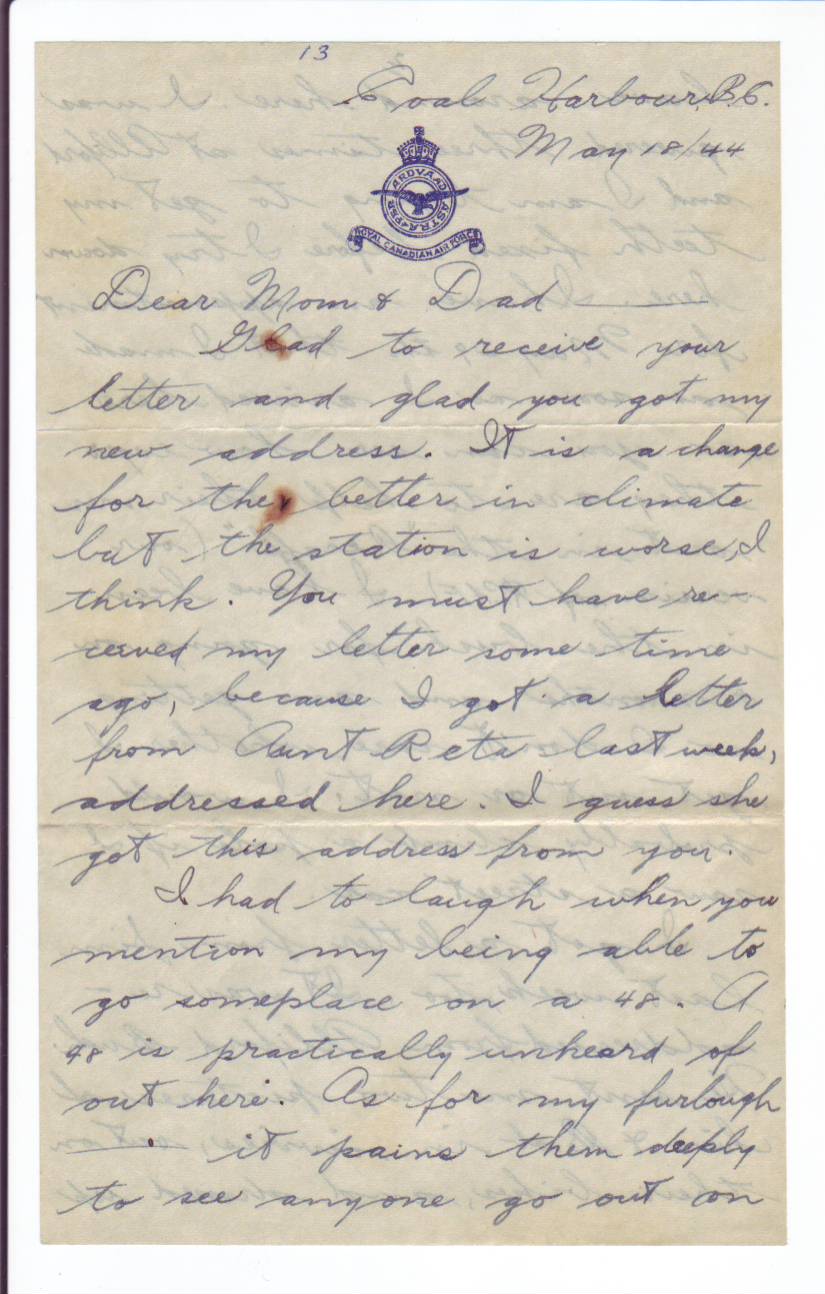 13
Coal Harbour, B.C.
May 18/44
PER ARDVA AD ASTRA
ROYAL CANADIAN AIR FORCE
Dear Mom & Dad
Glad to receive your
letter and glad you got my
new address. It is a change
for the better in climate
but the station is worse, I
think. You must have re-
ceived my letter some time
ago, because I got a letter
from Aunt Reta last week,
addressed here. I guess she
got this address from you.
I had to laugh when you
mention my being able to
go someplace on a 48. A
48 is practically unheard of
out here. As for my furlough
—. it pains them deeply
to see anyone go out on